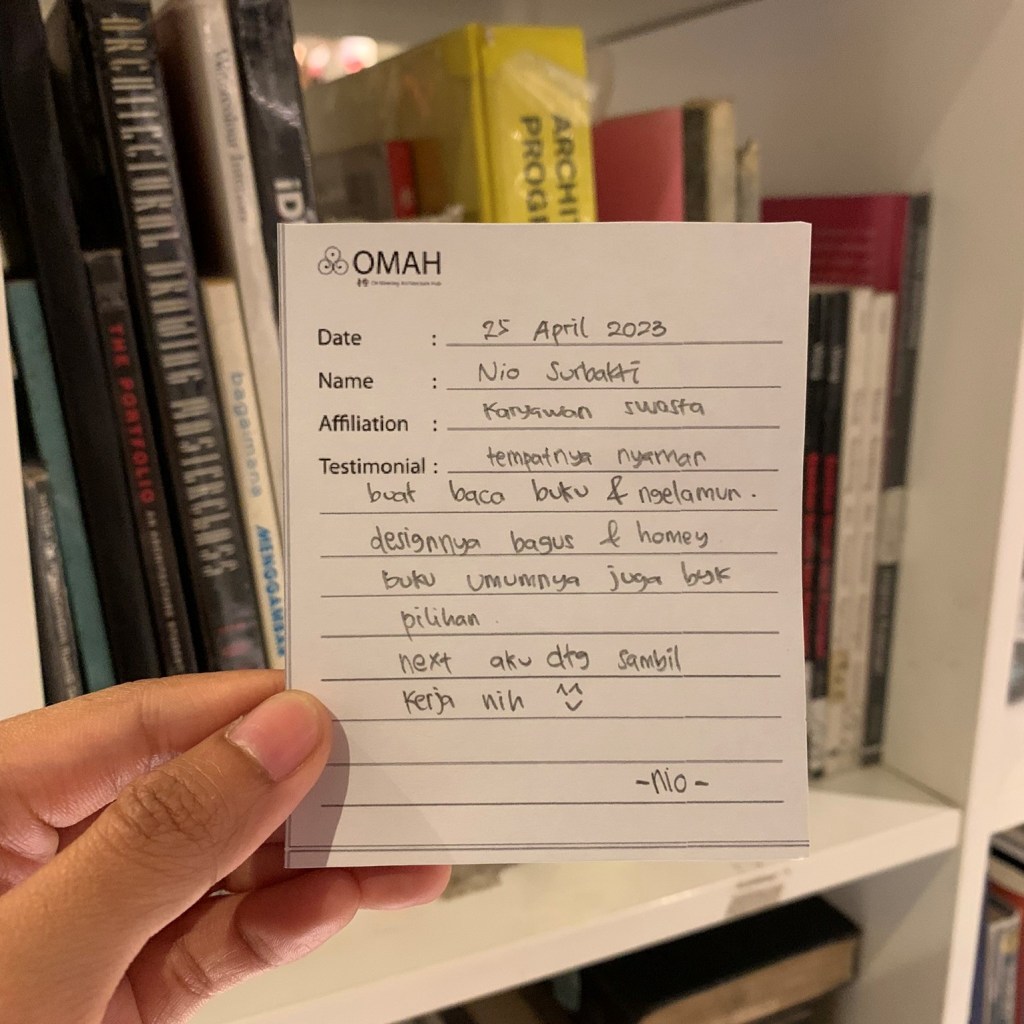 ARCHITECTURAL DRAWING MASTERCLASS
THE PORTFOLIO
bagaimana
MENGGAMBAR
iD
ARCHI
PROGR
OMAH
Date : 25 April 2023
Name : Nio Surbakti
Affiliation : Karyawan swasta
Testimonial : tempatnya nyaman
buat baca buku & ngelamun.
designnya bagus & homey
buku umumnya juga byk
pilihan.
next aku dtg sambil
kerja nih ^^
-nio-